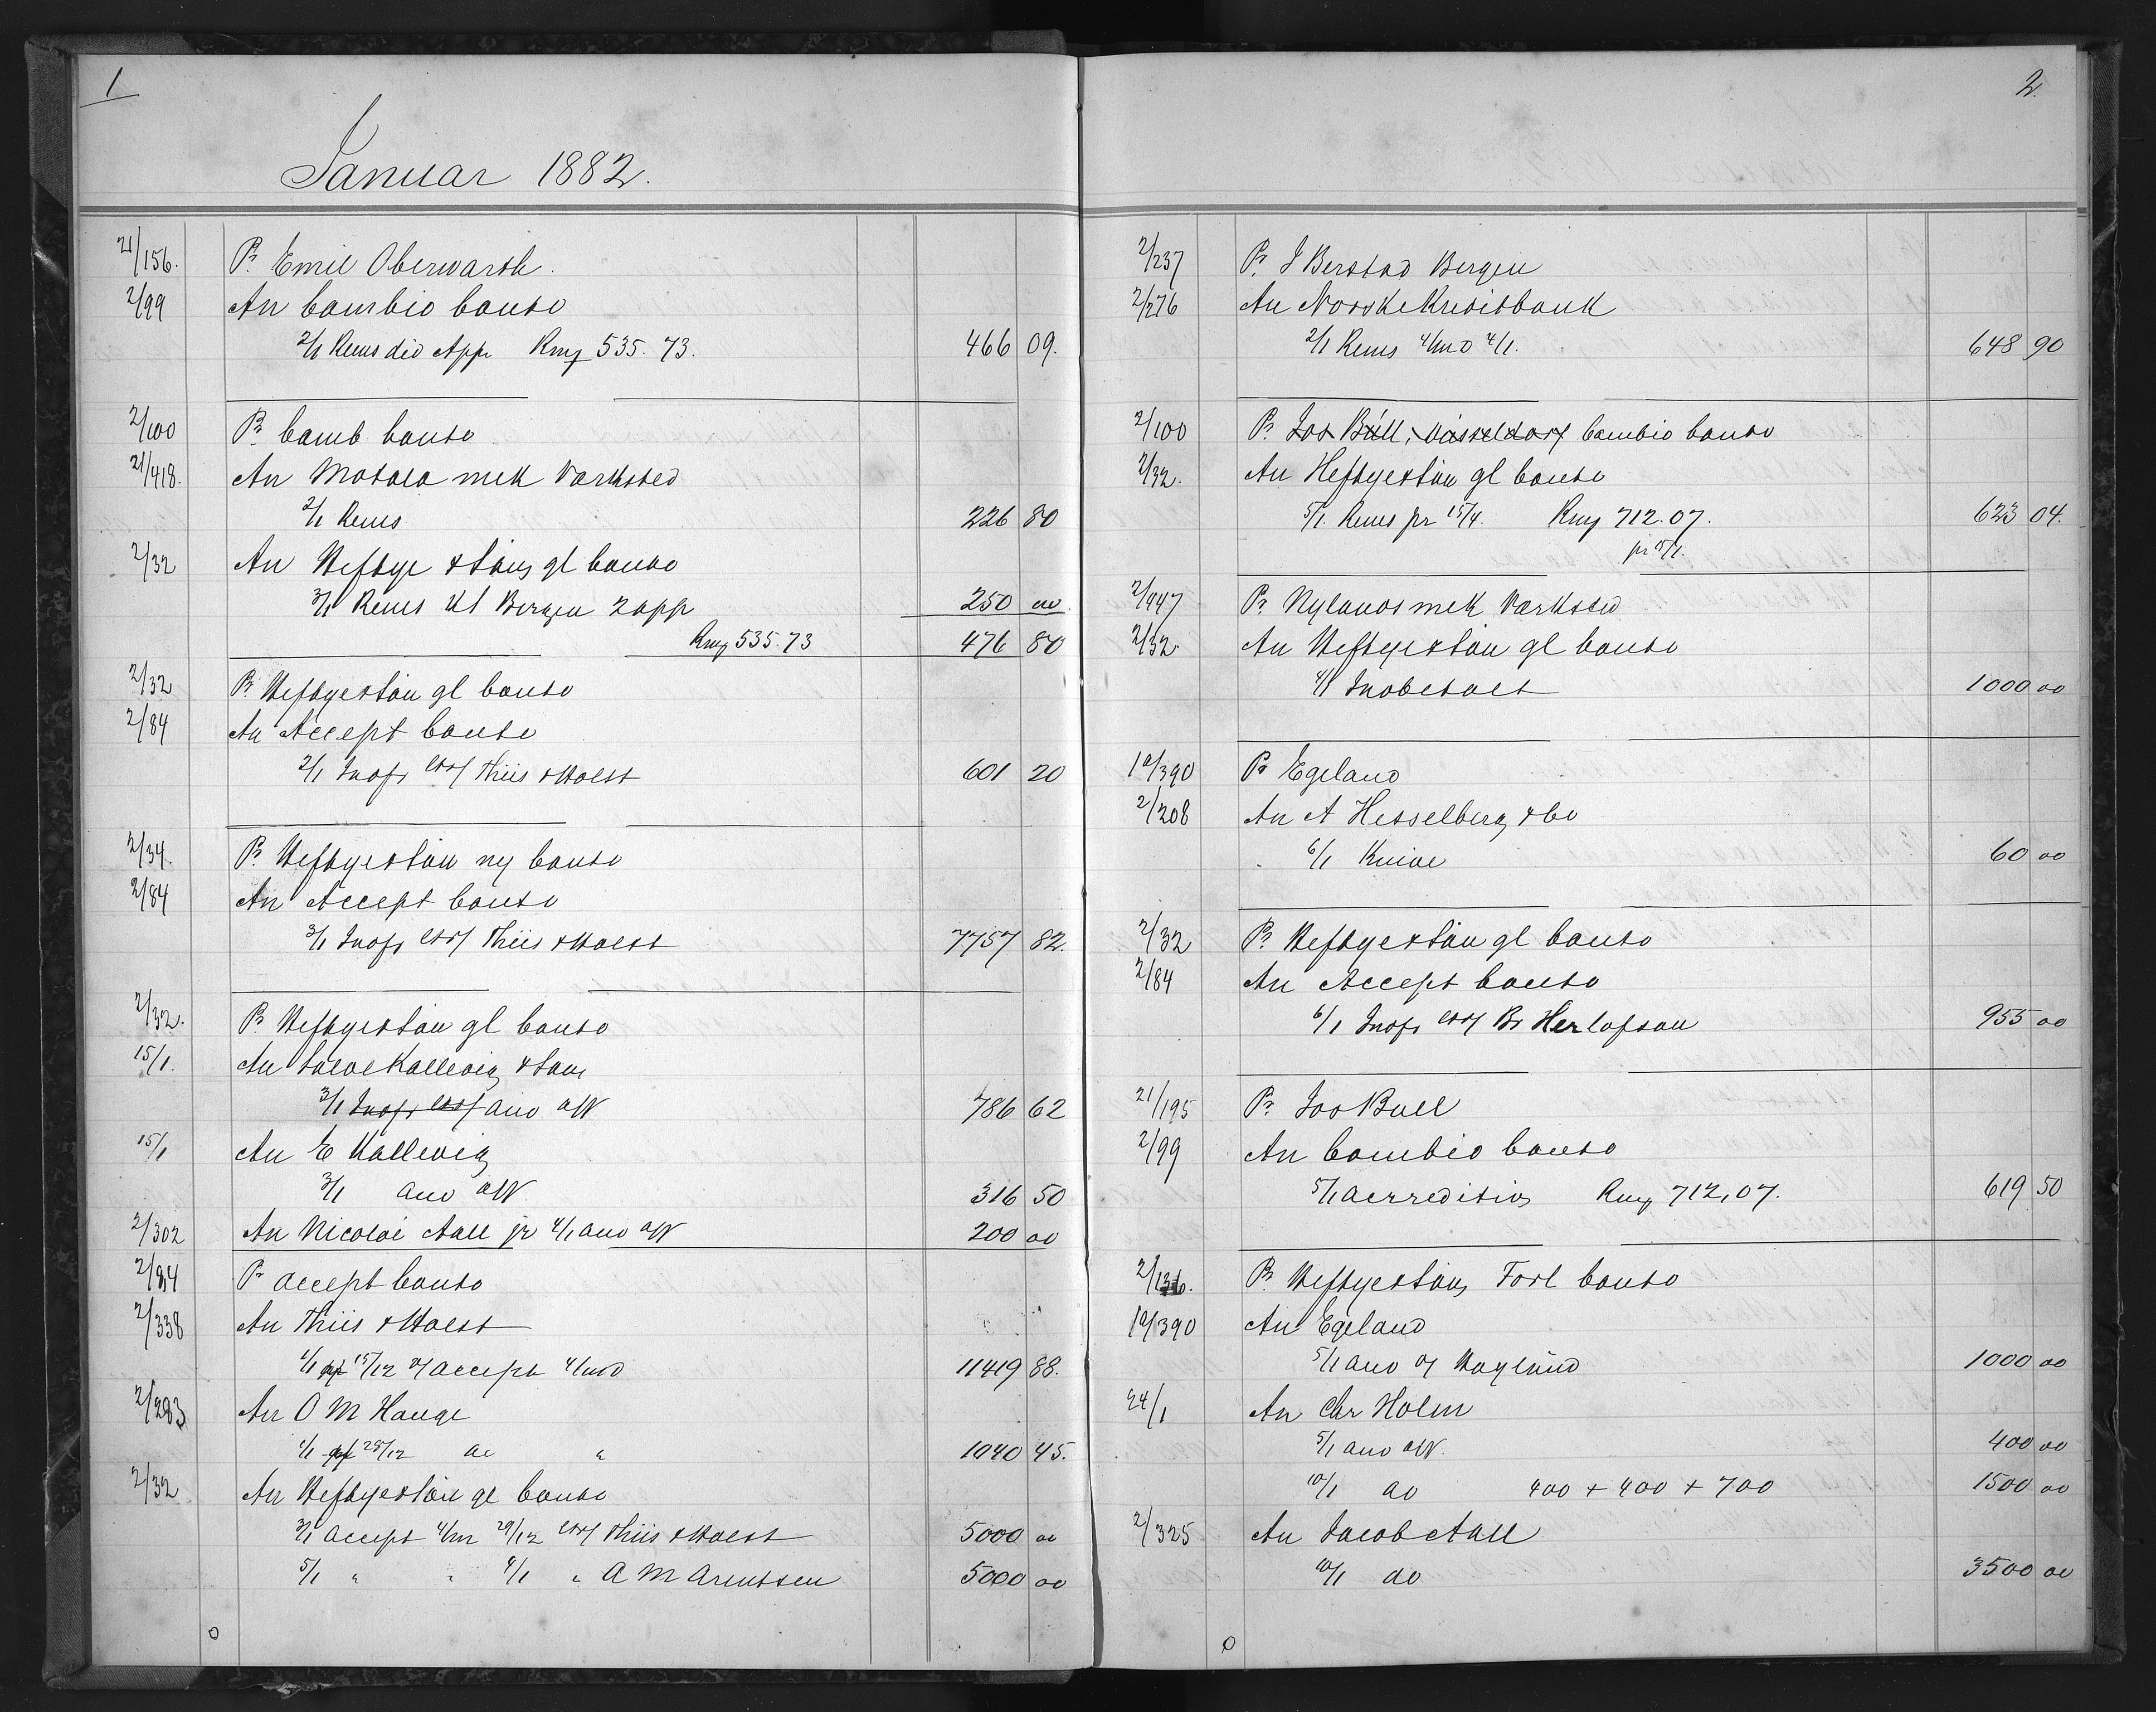 1
Januar 1882.
21/156. Pr Emil Oberwarth.
2/99 An Cambio Conto
2/1 Rems div App Rmq 535.73. 466 09.
2/100 Pr Camb Conto
21/418. An Motala mekVærksted
2/1 Rems 226 80
2/32 An Heftye & Søn gl Conto
3/1 Rems Kl Bergen 2 app 250 00
Rmq 535.73 476 80
2/32 Pr Heftye & Søn gl Conto
2/84 An Accept Conto
2/1 Indfr Thiis & Holst 601 20
2/34. Pr Heftye & Søn ny Conto
2/84 An Accept Conto
3/1 Indfr Thiis & Holst 7757 82.
2/32. Pr Heftye & Søn gl Conto
15/1. An Salve Kallevig & Søn
3/1 anv 786 62
15/1 An E Kallevig
3/1 anv 316 50
2/302 An Nicolai Aall jr 4/1 anv 200 00
2/84 Pr Accept Conto
2/338 An Thiis & Holst
15/12 accept 4/md 11419 88.
2/283 An O M Hauge
25/12 1040 45.
2/32 An Heftye & Søn gl Conto
3/1 accept 4/m 29/12 Thiis & Holst 5000 00
5/1 " " 4/1 " A M Arentssen 5000 00
2.
2/237 Pr J Berstad Bergen
2/276 An Norske Kreditbank
2/1 Rems 4/md 4/1. 648 90
2/100 Pr Jos Büll, Düsseldorf Cambio Conto
2/32. An Heftye & Søn gl Conto
5/1. Rems pr 15/4. Rmq 712.07. 623 04.
2/447 Pr Nylands mek Værksted
2/32. An Heftye & Søn gl Conto
4/1 Indbetalt 1000 00
19/390 Pr Egeland
2/208 An A Hesselberg & Co
6/1 60 00
2/32 Pr Heftye & Søn gl Conto
2/84 An Accept Conto
6/1 Indfr Br Herlofson 955 00
21/195 Pr Jos Bull
2/99 An Cambio Conto
5/1 accreditiv Rmq 712,07. 619 50
Pr Heftye & Søn Forl Conto
19/390 An Egeland
5/1 anv Høylund 1000 00
24/1 An Chr Holm
5/1 anv 400 00
10/1 do 400 + 400 + 700 1500 00
2/325 An Jacob Aall
10/1 do 3500 00